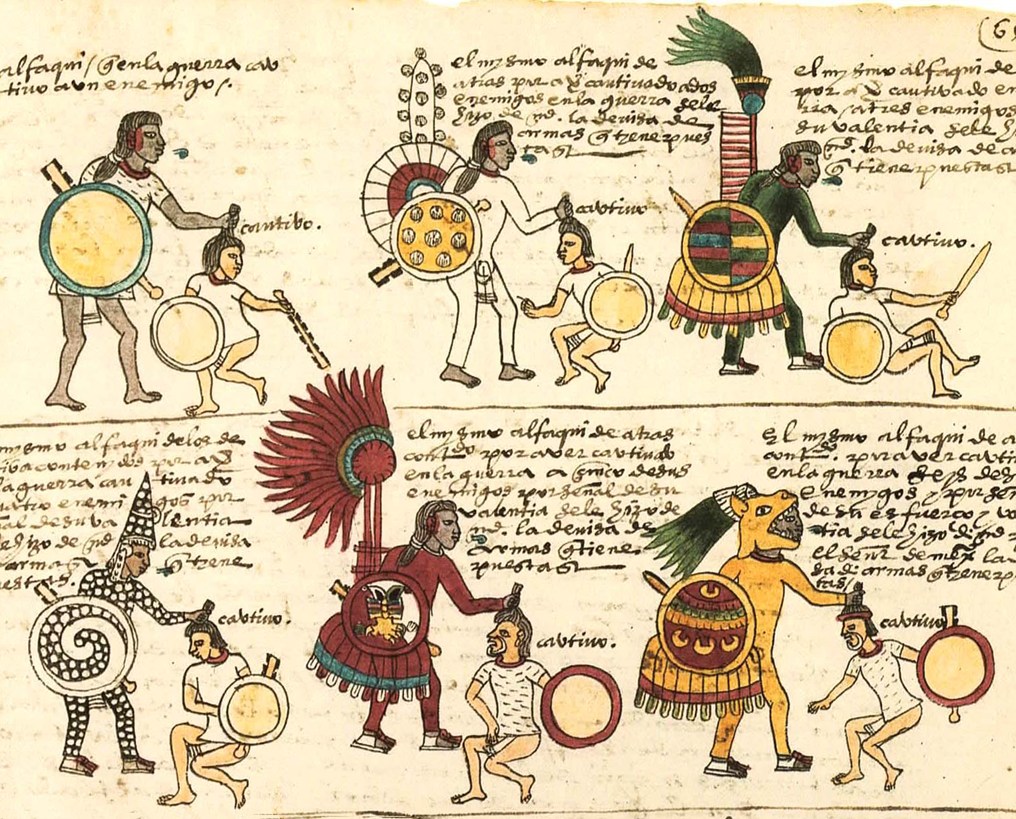 65
alfaqui / q̃ en la guerra cau
tivo a un enemigo /.
cautibo.
el mysmo alfaqui de
atras por a vr̃ cautivado a dos
enemigos en la guerra se le
hizo de md. la devisa de
armas q̃ tiene pues
tas
cautivo
el mysmo alfaqui de
por a vr̃ cautivado en
rra / a tres enemigos
su valentia se le hi
md. la devisa de a
q̃ tiene puestas
cautivo.
mysmo alfaqui de los de
contenidos por a vr̃
la guerra cautivado
quatro enemigos por
al de su valentia
hizo de md la devisa
armas q̃ tiene
uestas.
cautivo.
el mysmo alfaqui de atras
por aver cautivado
en la guerra a cinco de sus
enemigos por señal de su
valentia se le hizo de
md. la devisa de
armas q̃ tiene
puestas
cautivo.
El mysmo alfaqui de a
por aver cauti
en la guerra seys de
enemygos y por señ
de su esfuerço y va
tia se le hizo de md
el señr de mexº la
sa de armas q̃ tiene p
tas /
cautivo